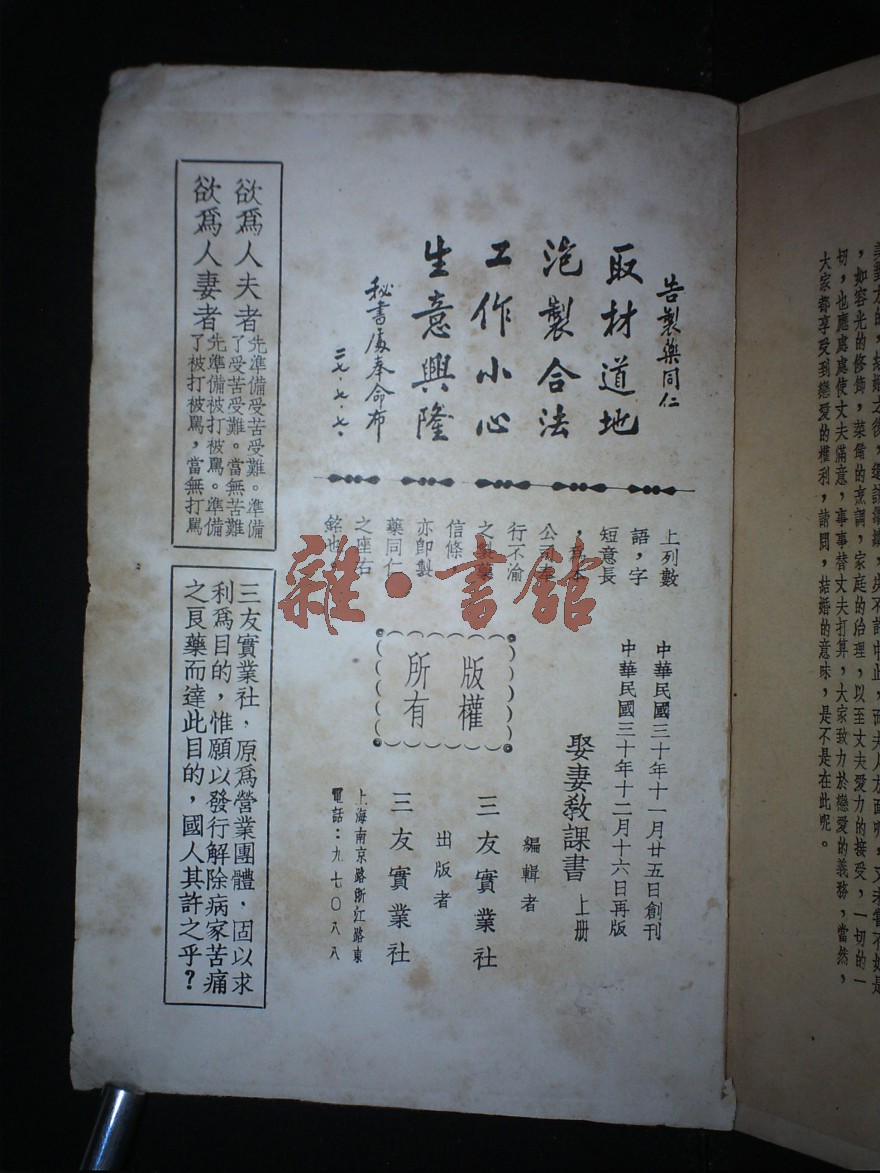 ，如容光的修飾，菜餚的烹調，家庭的治理，以至丈夫愛力的接受，一切的一
切，也應處處使丈夫滿意，事事替丈夫打算，大家致力於戀愛的義務，當然，
大家都享受到戀愛的權利，請問，結婚的意味，是不是在此呢。
告製藥同仁
取材道地
泡製合法
工作小心
生意興隆
秘書處奉命布
二七.七.七.
上列數
語，字
短意長
，為本
公司奉
行不渝
之製藥
信條，
亦即製
藥同仁
之座右
銘也
中華民國三十年十一月廿五日創刊
中華民國三十年十二月十六日再版
娶妻教課書 上册
編輯者
三友實業社
出版者
三友實業社
上海南京路浙江路東
電話：九七〇八八
版權
所有
欲爲人夫者
先準備受苦受難。準備
了受苦受難。當無苦難
欲爲人妻者
先準備被打被罵。準備
了被打被罵，當無打罵
三友實業社，原爲營業團體，固以求
利爲目的，惟願以發行解除病家苦痛
之良藥而達此目的，國人其許之乎？
雜·書館